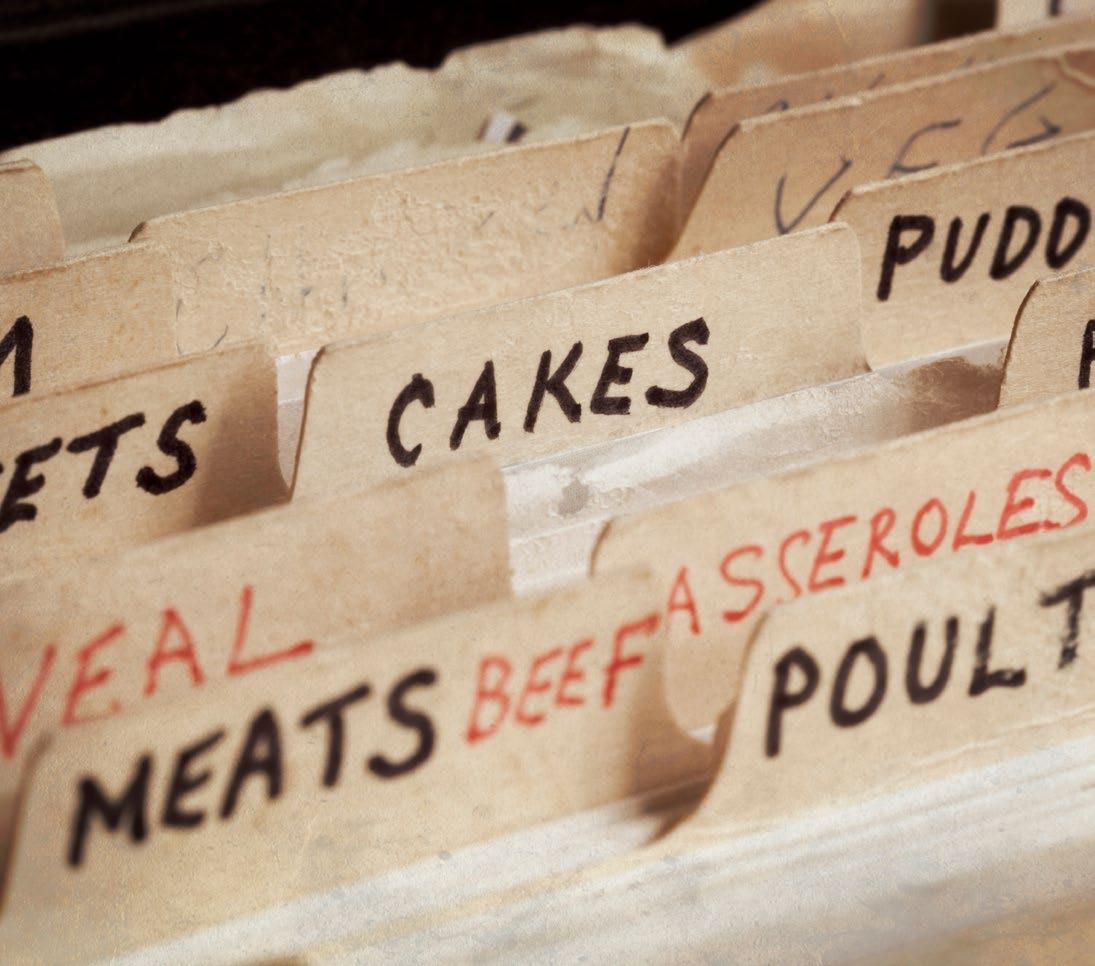 VEG
PUDD
CAKES
ETS
ASSEROLES
VEAL
MEATS BEEF
POULT